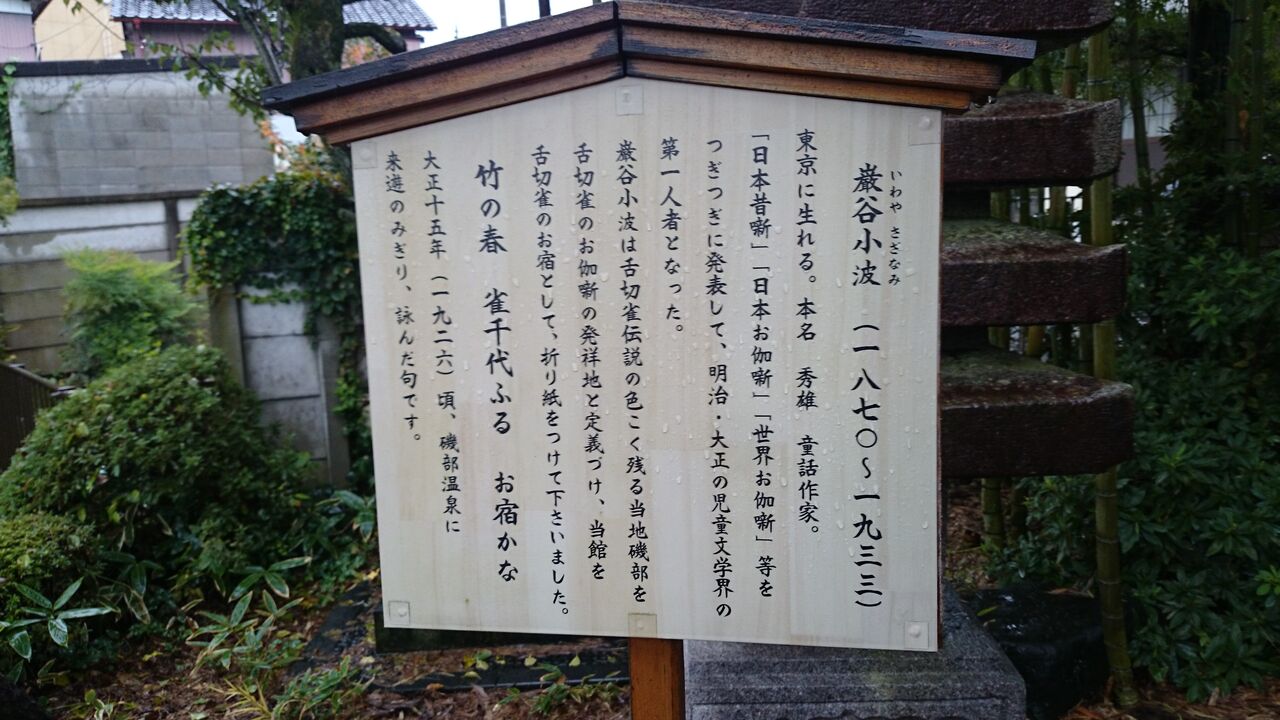 いわや さざなみ
巌谷小波 (一八七〇〜一九三三)
東京に生れる。本名 秀雄 童話作家。
「日本昔噺」「日本お伽噺」「世界お伽噺」等を
つぎつぎに発表して、明治・大正の児童文学界の
第一人者となった。
巌谷小波は舌切雀伝説の色こく残る当地磯部を
舌切雀のお伽噺の発祥地と定義づけ、当館を
舌切雀のお宿として、折り紙をつけて下さいました。
竹の春 雀千代ふる お宿かな
大正十五年(一九二六)頃、磯部温泉に
来遊のみぎり、詠んだ句です。